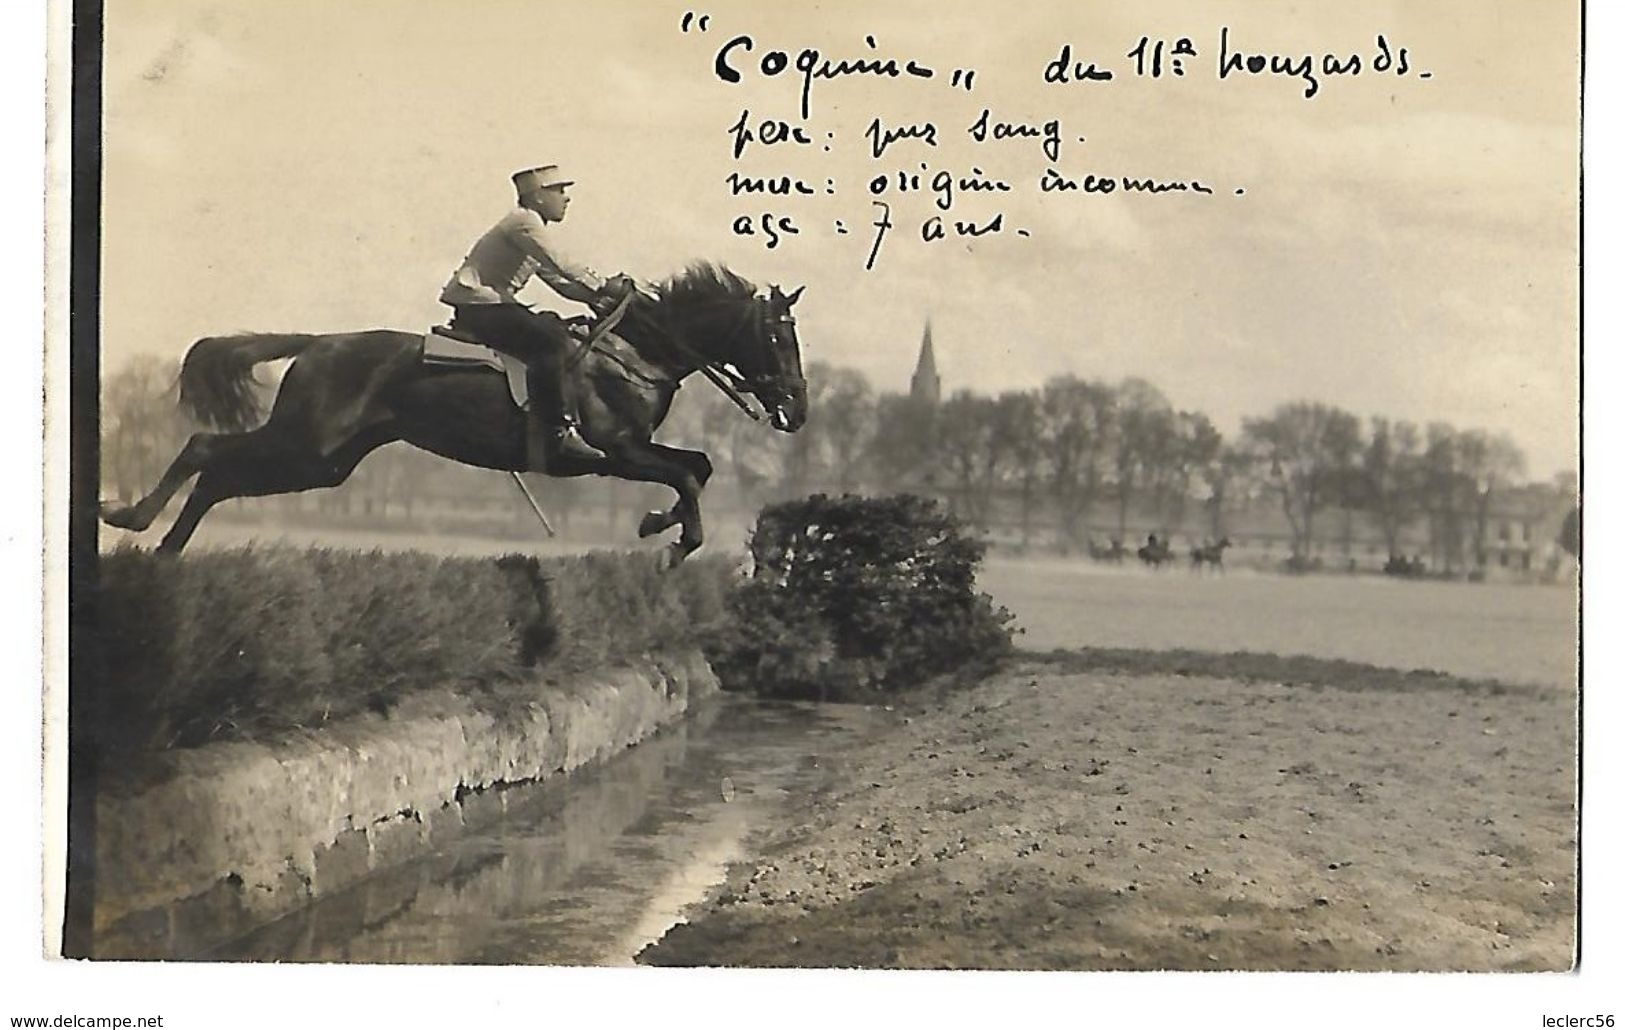 "Coquine„ du 11e houzards.
pere: pur sang.
mere: origine inconnue.
age : 7 ans.
www.delcampe.net
leclerc56